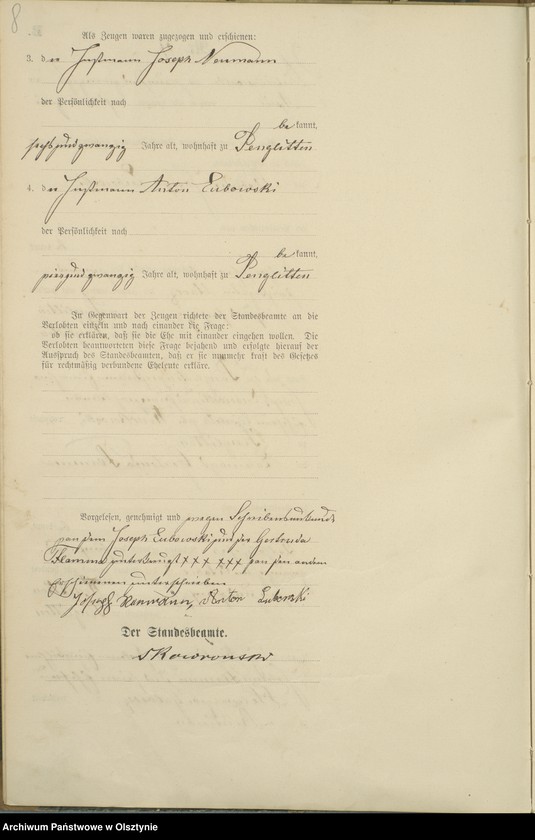 8
Als Zeugen waren zugezogen und erschienen:
3. der Instmann Joseph Neumann
der Persönlichkeit nach
bekannt,
sechsundzwanzig Jahre alt, wohnhaft zu Penglitten
4. der Instmann Anton Lubowski
der Persönlichkeit nach
bekannt,
vierundzwanzig Jahre alt, wohnhaft zu Penglitten
In Gegenwart der Zeugen richtete der Standesbeamte an die
Verlobten einzeln und nach einander die Frage:
ob sie erklären, daß sie die Ehe mit einander eingehen wollen. Die
Verlobten beantworteten diese Frage bejahend und erfolgte hierauf der
Ausspruch des Standesbeamten, daß er sie nunmehr kraft des Gesetzes
für rechtmäßig verbundene Eheleute erkläre.
Vorgelesen, genehmigt und wegen Schreibensunkunde
von dem Joseph Lubowski und der Gertruda
unterkreuzt xxx xxx von den andern
Erschienenen unterschrieben
Joseph Anton Lubowski
Der Standesbeamte.
Skowronski
Archiwum Państwowe w Olsztynie